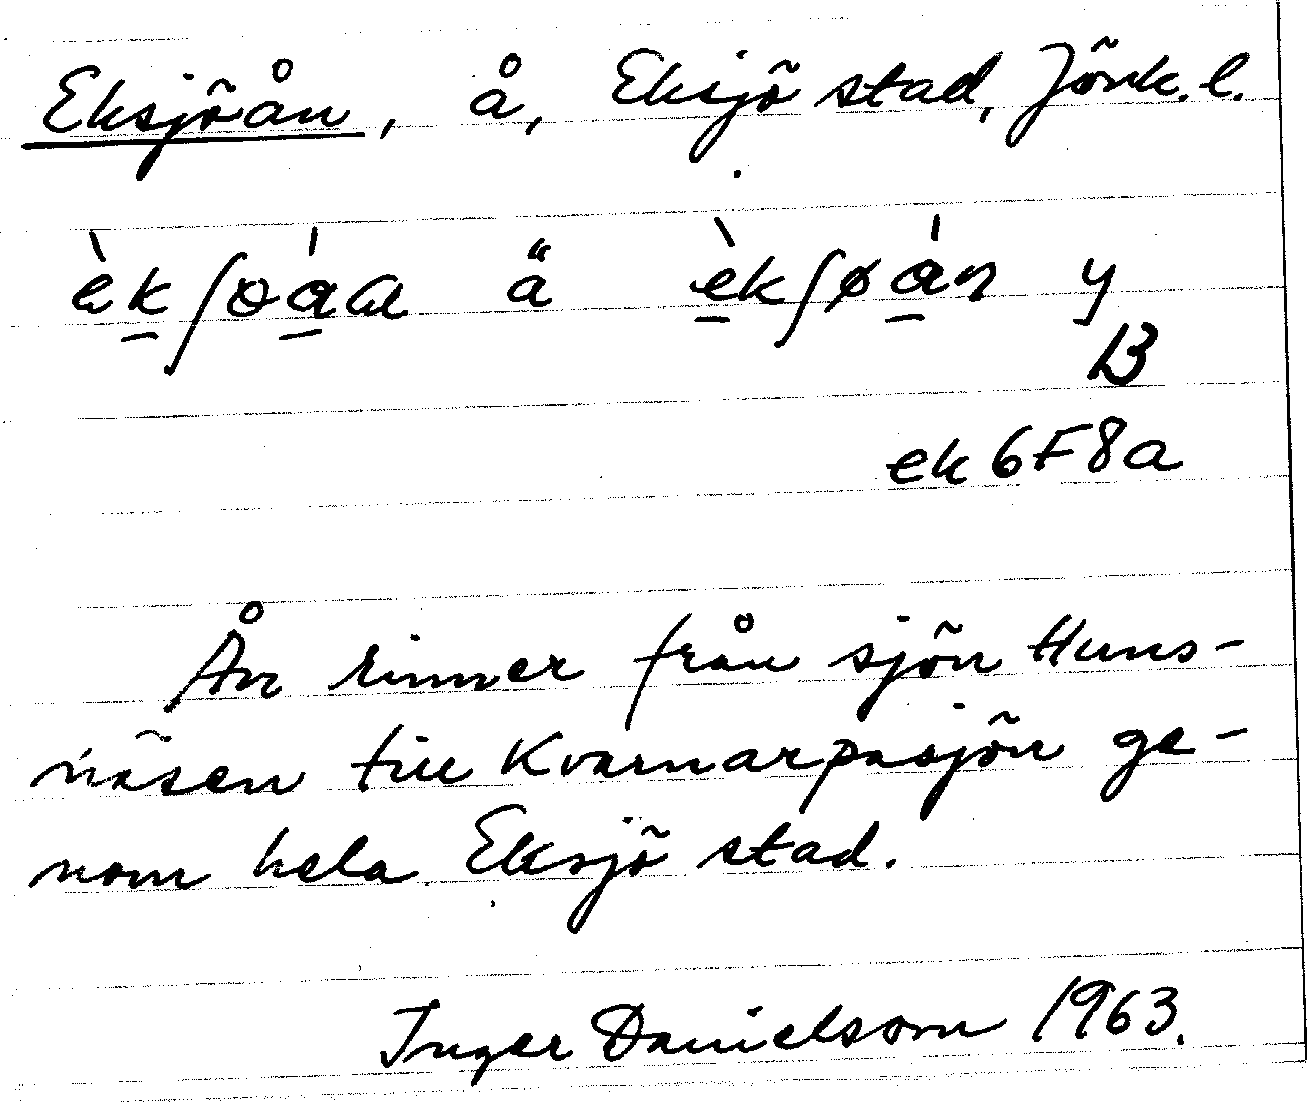 Eksjöån, å, Eksjö stad, Jönk. l.
èkʃøáa ä èkʃøán y
B
ek 6F8a
Ån rinner från sjön Huns-
näsen till Kvarnarpasjön ge-
nom hela Eksjö stad.
Inger Danielsson 1963.